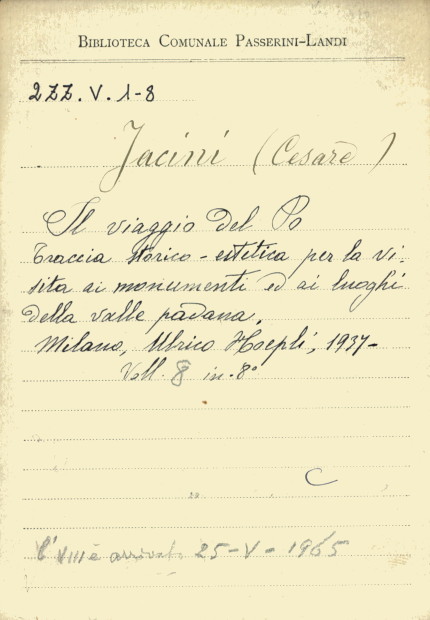 BIBLIOTECA COMUNALE PASSERINI-LANDI
2ZZ.V.1-8
Jacini (Cesare)
Il viaggio del Po
Traccia storico-estetica per la vi-
sita ai monumenti ed ai luoghi
della valle padana.
Milano, Ulrico Hoepli, 1937-
Voll. 8 in-8°
C
L'VIII è arrivat. 25-V-1965